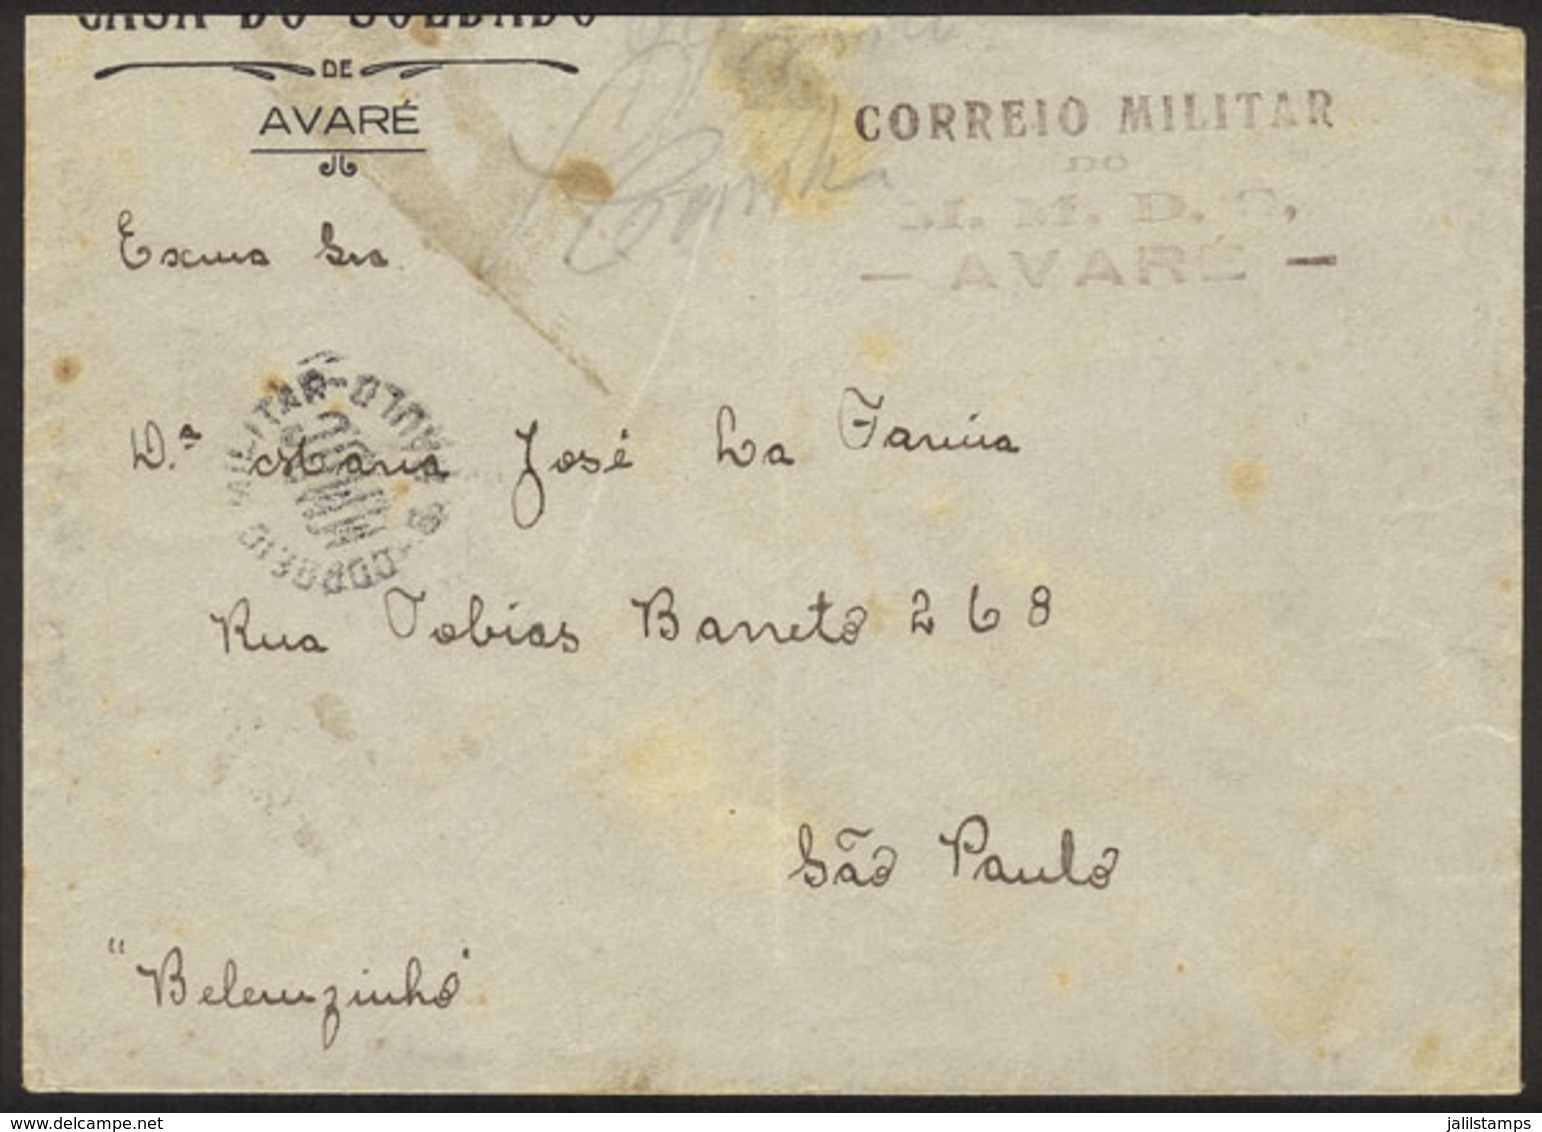 CASA DO SOLDADO
DE
AVARÉ
CORREIO MILITAR
DO
M. M. D. C,
— AVARÉ —
Exma Sra.
D.ª Maria José La Farina
CORREIO MILITAR - S. PAULO
MMDC
Rua Tobias Barreto 268
São Paulo
"Belemzinho"
www.delcampe.net
jalilstamps